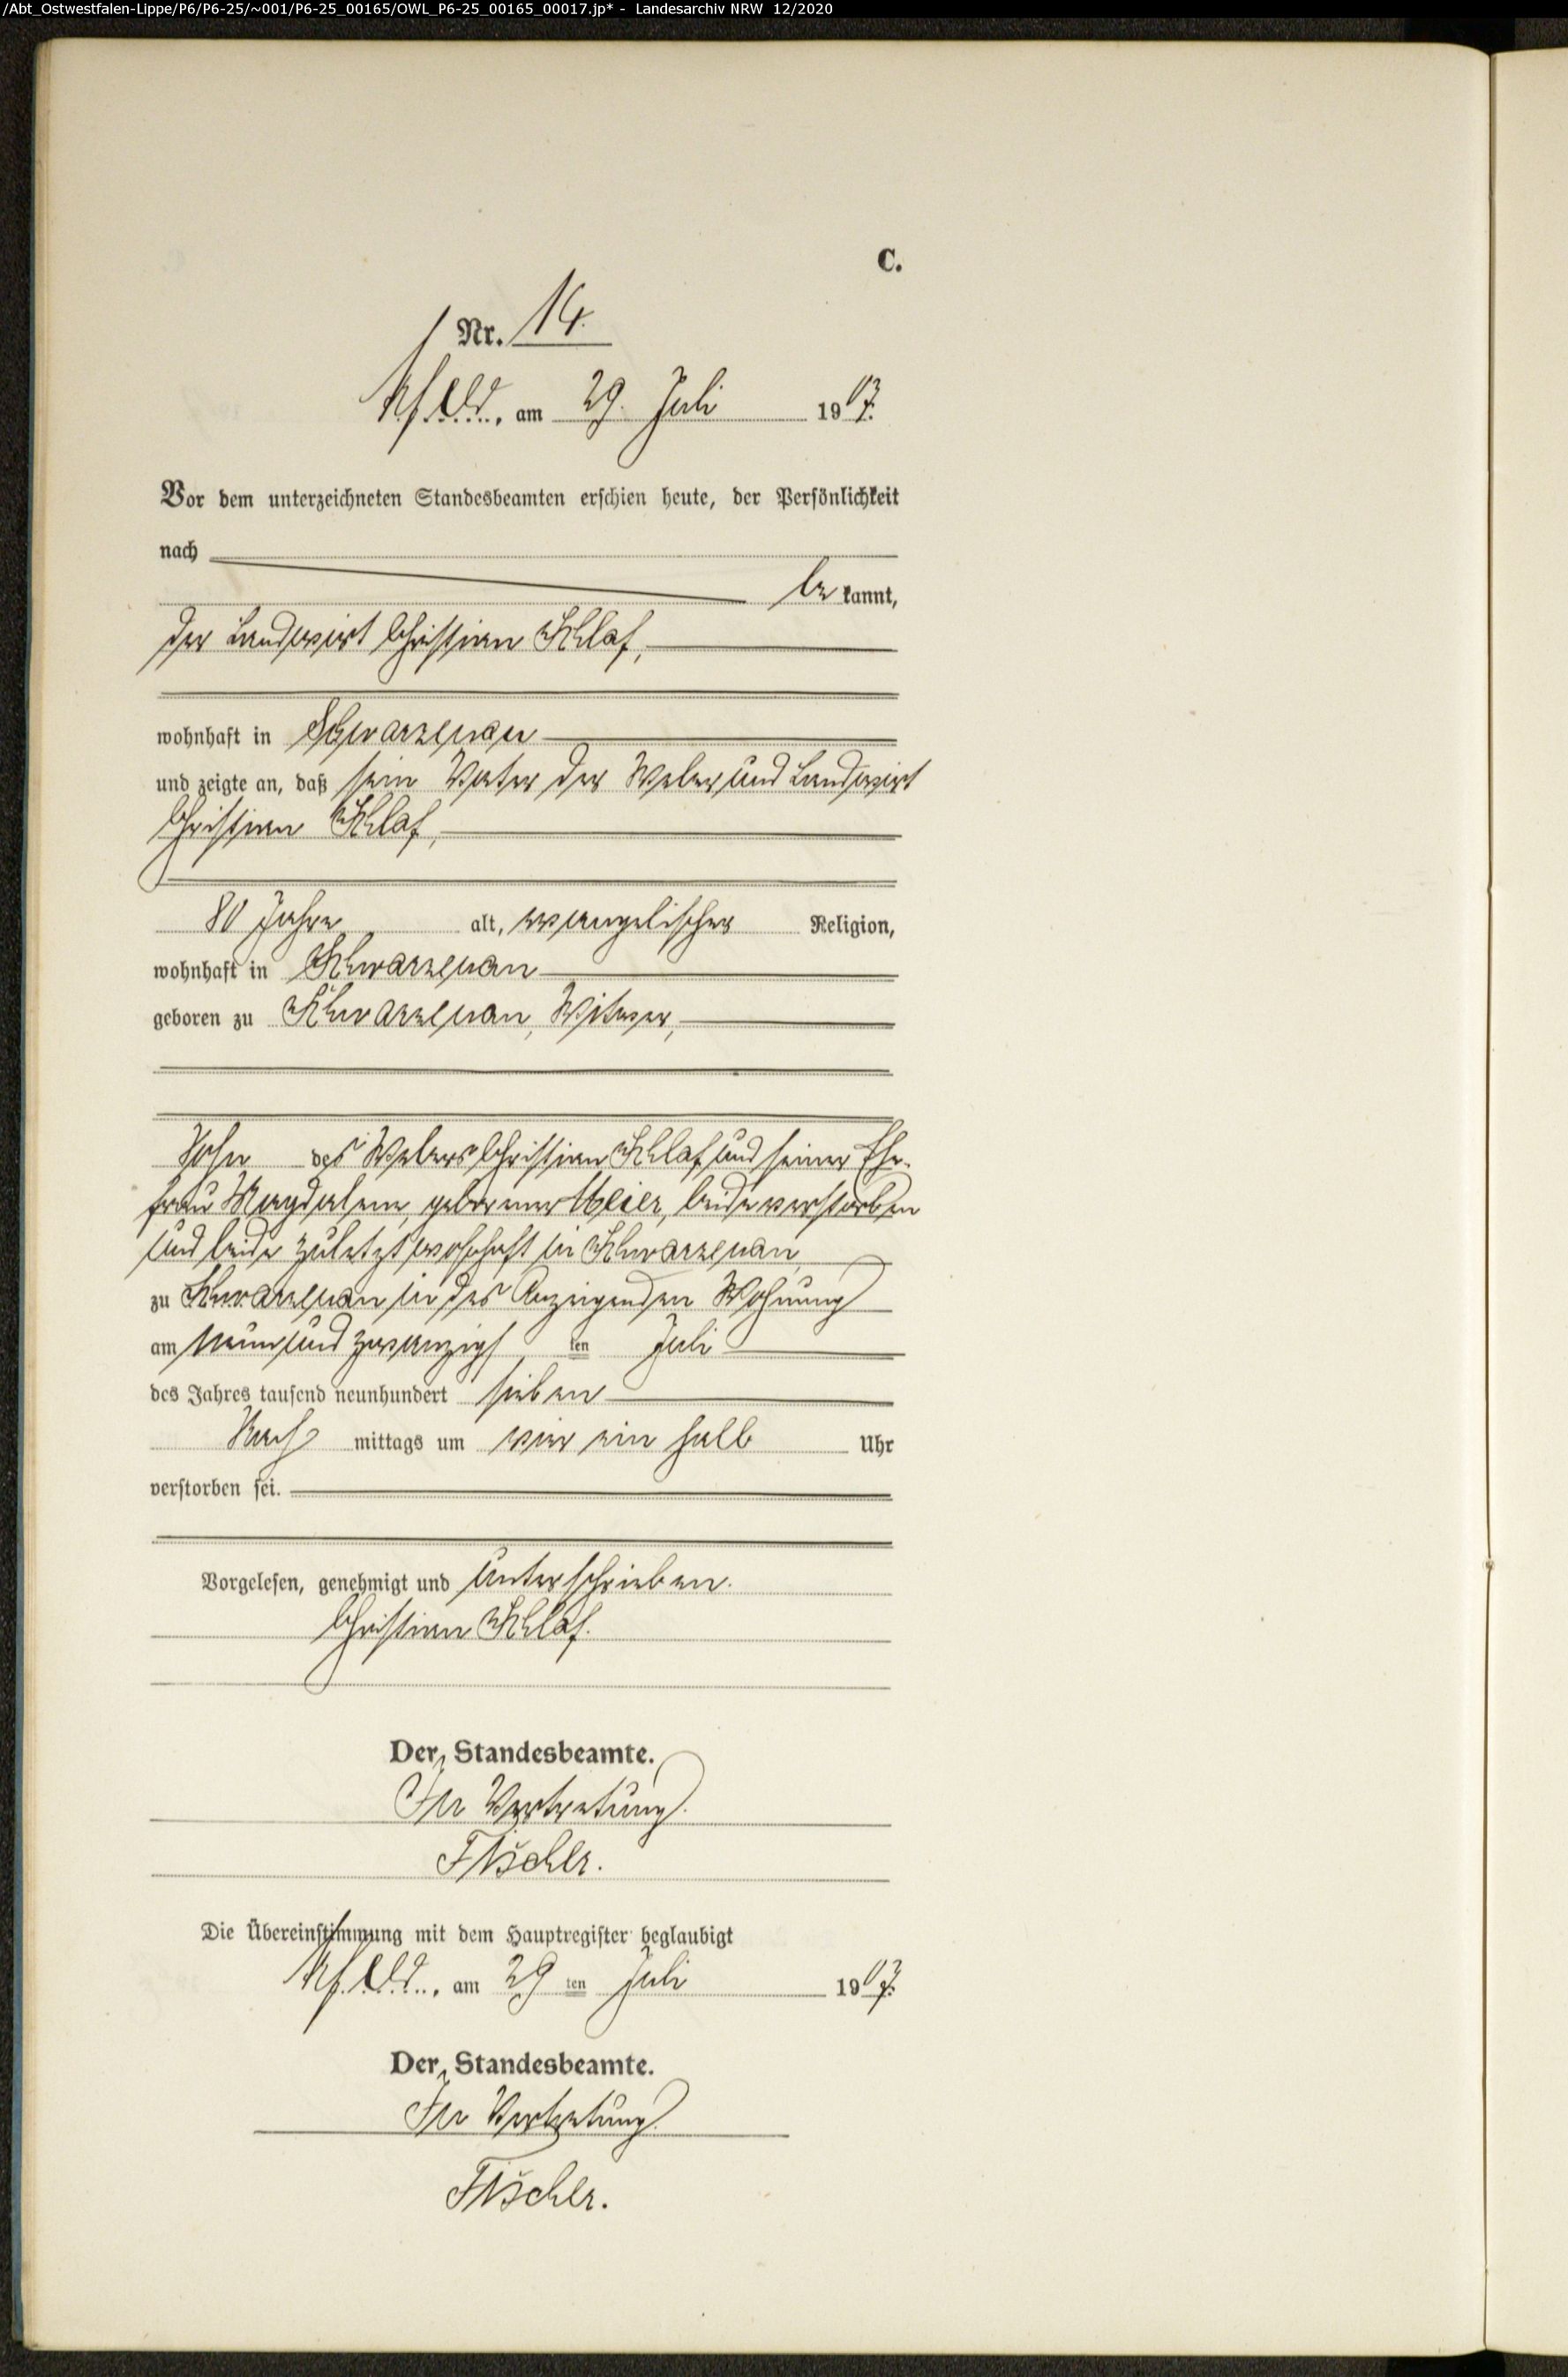 /Abt_Ostwestfalen-Lippe/P6/P6-25/~001/P6-25_00165/OWL_P6-25_00165_00017.jp* - Landesarchiv NRW 12/2020
C.
Nr. 14.
am 29. Juli 1907.
Vor dem unterzeichneten Standesbeamten erschien heute, der Persönlichkeit
nach
bekannt,
der Landwirt Christian Schlaf,
wohnhaft in Schwarzenau
und zeigte an, daß sein Vater der Weber und Landwirt
Christian Schlaf,
80 Jahre alt, evangelischer Religion,
wohnhaft in Schwarzenau
geboren zu Schwarzenau, Witwer,
Sohn des Webers Christian Schlaf und seiner Ehe-
frau Magdalene, geborener Meier, beide verstorben
und beide zuletzt wohnhaft in Schwarzenau,
zu Schwarzenau in des Anzeigenden Wohnung
am neunundzwanzigsten Juli
des Jahres tausend neunhundert sieben
Nachmittags um vier ein halb Uhr
verstorben sei.
Vorgelesen, genehmigt und unterschrieben.
Christian Schlaf.
Der Standesbeamte.
In Vertretung.
Die Übereinstimmung mit dem Hauptregister beglaubigt
am 29ten Juli 1907.
Der Standesbeamte.
In Vertretung.